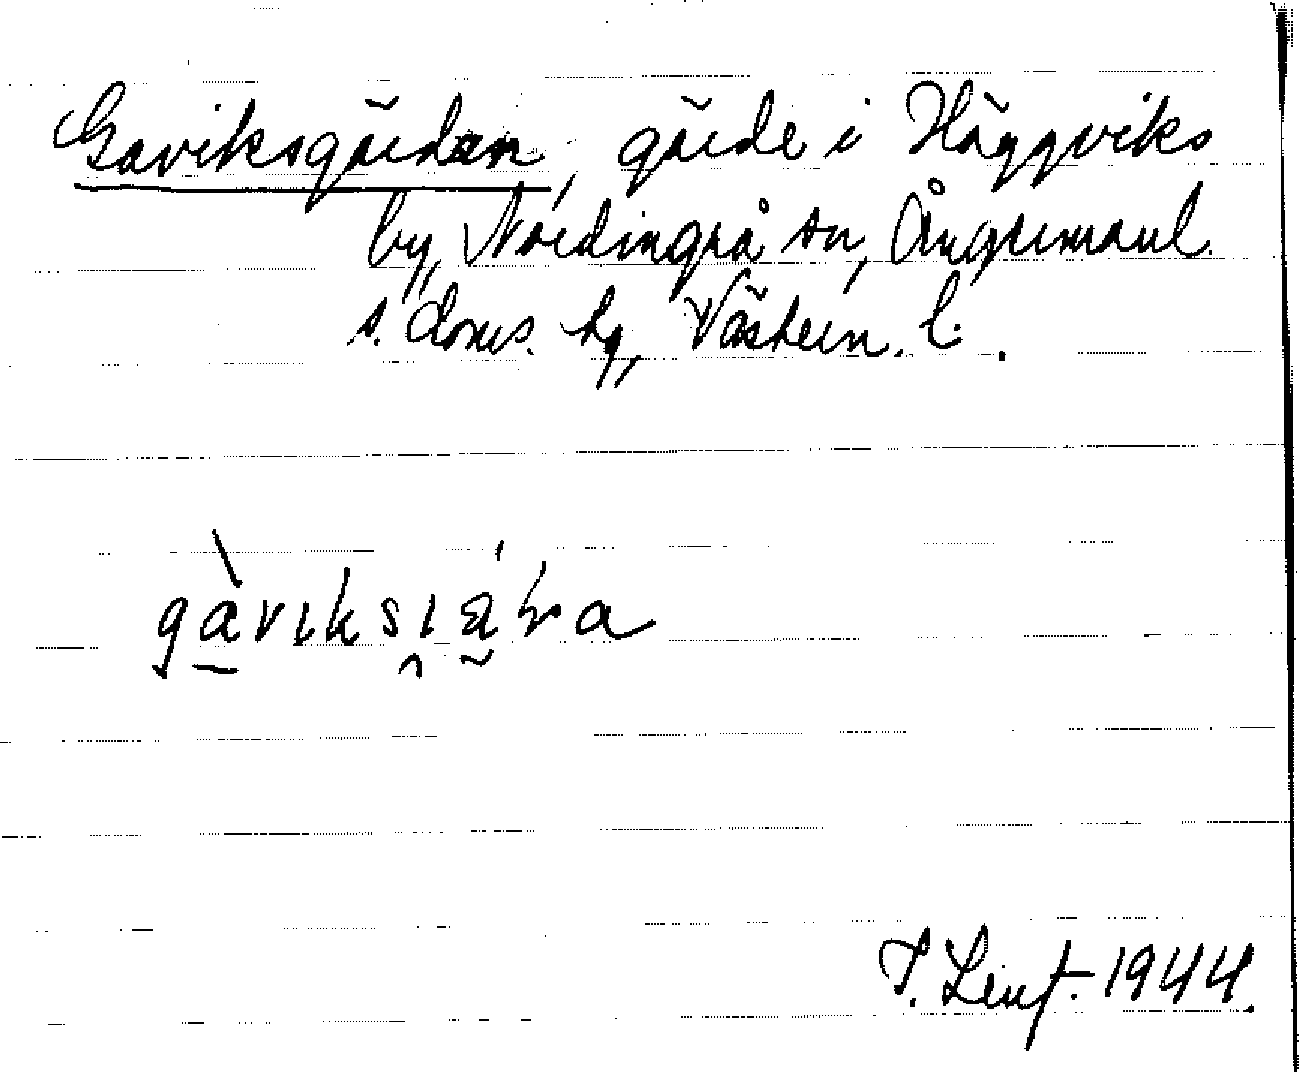 Gaviksgärdan, gärde i Häggviks
by, Nordingrå sn, Ångermanl.
s. doms. hg, Västern. l.
gàviksi̯ära